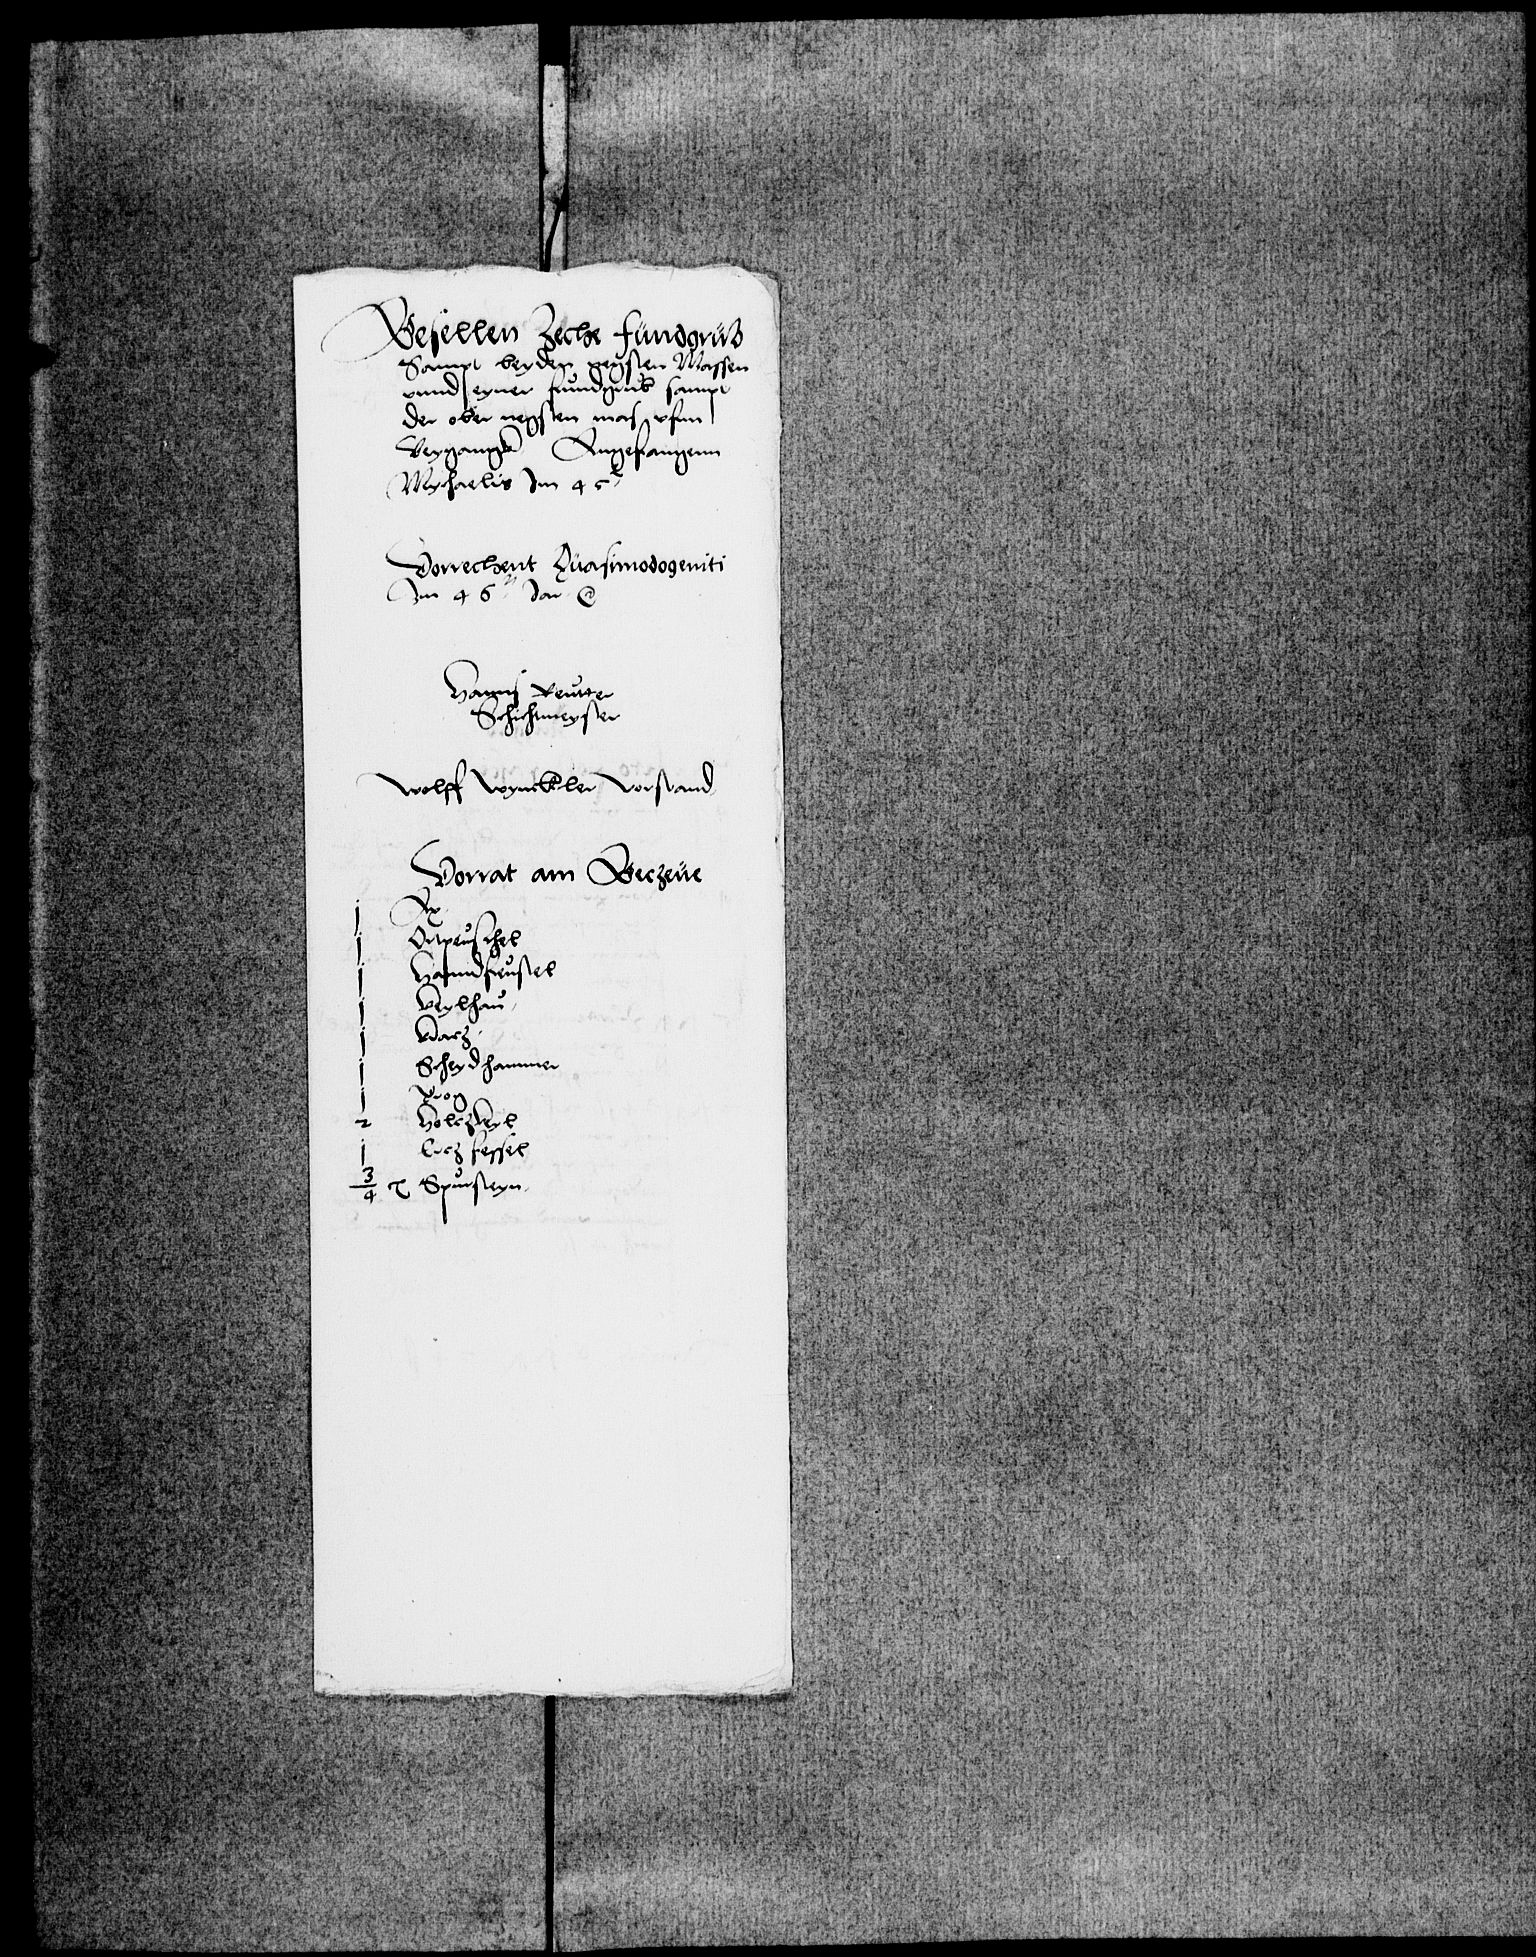 Gesellen Zeche fundgrub
Sampt beyden negsten Massen
vnnd eyner fundgrub sampt
der ober negsten mas vfm
Beygangk Angefangenn
Mychaelis Im 45
Vorrechent Quasimodogeniti
Im 46 Jar
Hanns Reutter
Schichtmeyster
Wolff Wynckler Vorstand
Vorrat am Geczeue
1 Ax
1 Ortpeuschel
1 Hanndfeustel
1 Keylhau
1 Kracz
1 Scheydhammer
1 Trog
2 Holczkeyl
1 kessel
3/4 Spursteyn